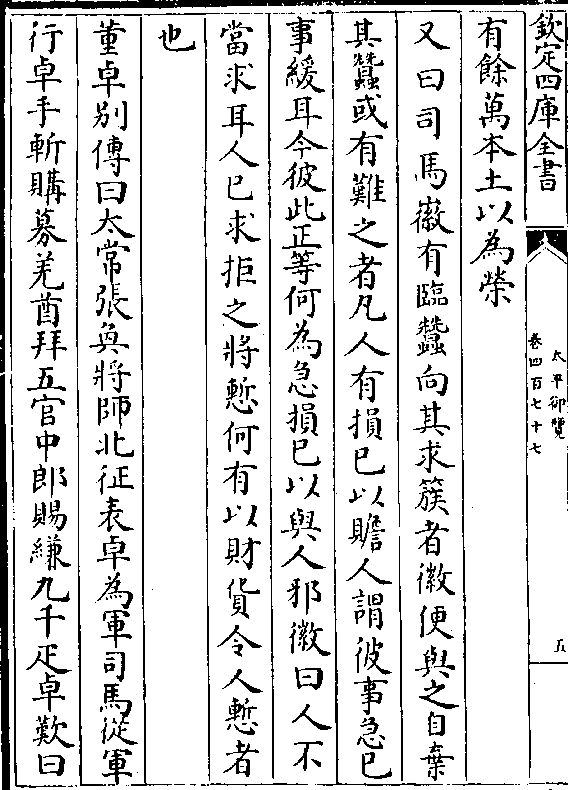 欽定四庫全書
太平御覽
卷四百七十七
五
有餘萬本土以為榮
又曰司馬徽有臨蠶向其求簇者徽便與之自棄
其蠶或有難之者凡人有損己以贍人謂彼事急己
事緩耳今彼此正等何為急損己以與人邪徽曰人不
當求耳人已求拒之將慙何有以財貨令人慙者
也
董卓别傳曰太常張奐將師北征表卓為軍司馬從軍
行卓手斬購募羌酋拜五官中郎賜縑九千疋卓歎曰